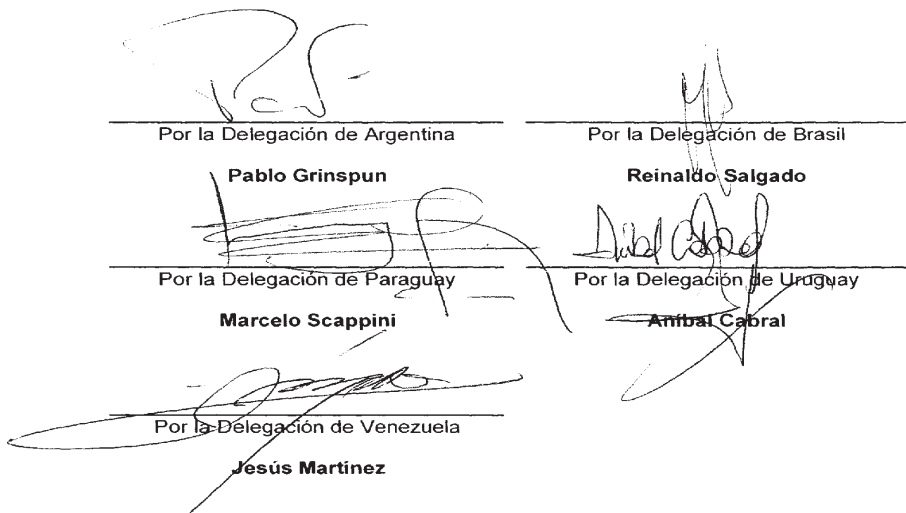 Por la Delegación de Argentina
Pablo Grinspun
Por la Delegación de Brasil
Reinaldo Salgado
Por la Delegación de Paraguay
Marcelo Scappini
Anibal Cabral
Por la Delegación de Uruguay
Aníbal Cabral
Por la Delegación de Venezuela
Jesús Martínez